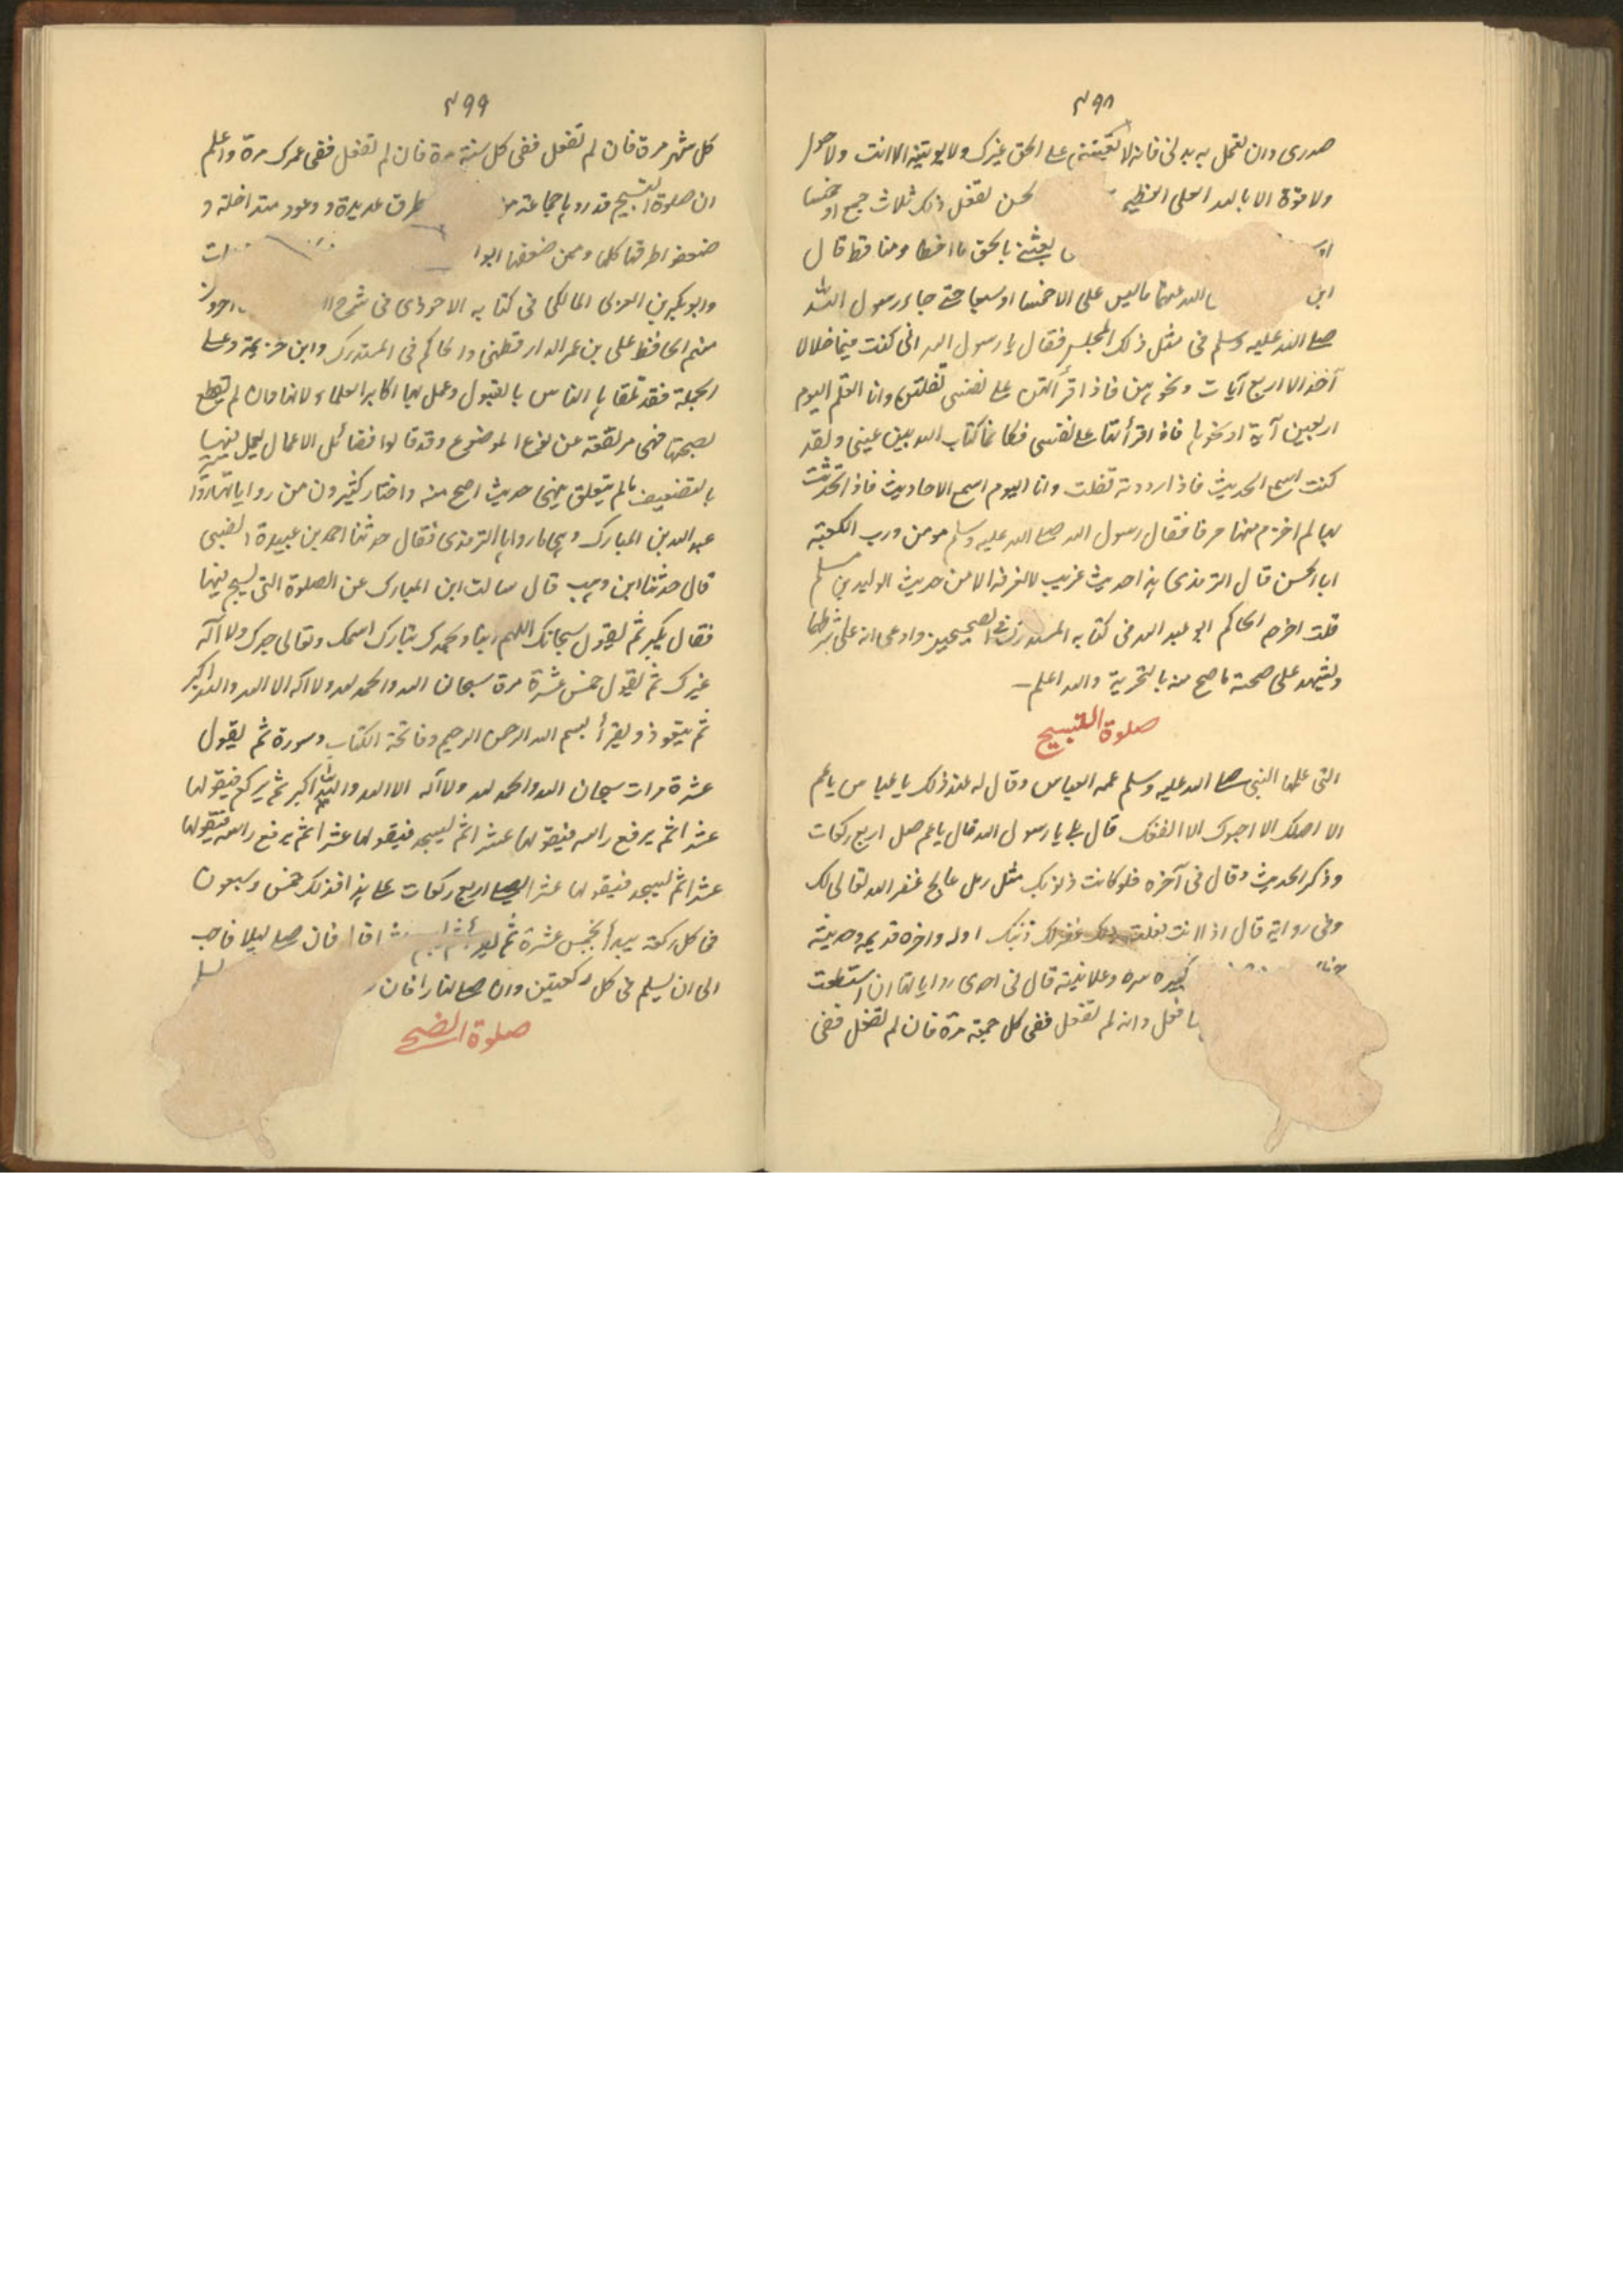 ٣٩٨
صدری وان تعمل به بدنی فانه لا یعیننی علی الحق غیرک ولا یوتیه الا انت ولا حول
ولا قوة الا بالله العلی العظیم الحسن تفعل ذلک ثلاث جمع او خمسا
بعثنی بالحق ما اخطا ومنا قط قال
ابن الله عنهما ما لیس علی الا خمسا او سبعا حتی جاء رسول الله
صلی الله علیه وسلم فی مثل ذلک المجلس فقال یا رسول الله انی کنت فیما خلا لا
آخذ الا اربع آیات ونحوهن فاذا قرأتهن علی نفسی تفلتن وانا اتعلم الیوم
اربعین آیة او نحوها فاذا قرأتها علی نفسی فکانما کتاب الله بین عینی ولقد
کنت اسمع الحدیث فاذا رددته تفلت وانا الیوم اسمع الاحادیث فاذا تحدثت
بها لم اخرم منها حرفا فقال رسول الله صلی الله علیه وسلم مومن ورب الکعبة
ابا الحسن قال الترمذی هذا حدیث غریب لا نعرفه الا من حدیث الولید بن مسلم
قلت اخرجه الحاکم ابو عبد الله فی کتابه المستدرک فی الصحیحین وادعی انه علی شرطهما
ویشهد علی صحته ما صح منه بالتجربة والله اعلم
صلوة التسبیح
التی علمها النبی صلی الله علیه وسلم عمه العباس وقال له عند ذلک یا عباس یا عم
الا اصلک الا احبوک الا انفعک قال بلی یا رسول الله قال یا عم صل اربع رکعات
وذکر الحدیث وقال فی آخره فلو کانت ذنوبک مثل رمل عالج غفر الله تعالی لک
وفی روایة قال اذا انت فعلت ذلک غفر لک ذنبک اوله واخره قدیمه وحدیثه
کبیره سره وعلانیته قال فی احدی روایاتها ان استطعت
فافعل وان لم تفعل ففی کل جمعة مرة فان لم تفعل ففی
٣٩٩
کل شهر مرة فان لم تفعل ففی کل سنة مرة فان لم تفعل ففی عمرک مرة واعلم
ان صلوة التسبیح قد رواها جماعة من طرق عدیدة ووعود متداخلة و
ضعفوا طرقها کلها وممن ضعفها ابو
وابو بکر بن العربی المالکی فی کتابه الاحوذی فی شرح
منهم الحافظ علی بن عمر الدارقطنی والحاکم فی المستدرک وابن خزیمة وعلی
الجملة فقد تلقاها الناس بالقبول وعمل بها اکابر العلماء لانها وان لم یقطع
بصحتها فهی مرتفعة عن نوع الموضوع وقد قالوا فضائل الاعمال یعمل فیها
بالضعیف ما لم یتعلق بها حدیث اصح منه واختار کثیرون من روایاتها روایة
عبد الله بن المبارک وهی ما رواها الترمذی فقال حدثنا احمد بن عبدة الضبی
قال حدثنا ابن وهب قال سالت ابن المبارک عن الصلوة التی یسبح فیها
فقال یکبر ثم یقول سبحانک اللهم ربنا وبحمدک تبارک اسمک وتعالی جدک ولا آله
غیرک ثم یقول خمس عشرة مرة سبحان الله والحمد لله ولا اله الا الله والله اکبر
ثم یتعوذ ویقرأ بسم الله الرحمن الرحیم وفاتحة الکتاب وسورة ثم یقول
عشرة مرات سبحان الله والحمد لله ولا آله الا الله والله اکبر ثم یرکع فیقولها
عشرا ثم یرفع راسه فیقولها عشرا ثم یسجد فیقولها عشرا ثم یرفع راسه فیقولها
عشرا ثم یسجد فیقولها عشرا یصلی اربع رکعات علی هذا فذلک خمس وسبعون
فی کل رکعة یبدأ بخمس عشرة ثم یقرأ ثم یسبح عشرا قال فان صلی لیلا فاحب
الی ان یسلم فی کل رکعتین وان صلی نهارا فان
صلوة الضحی